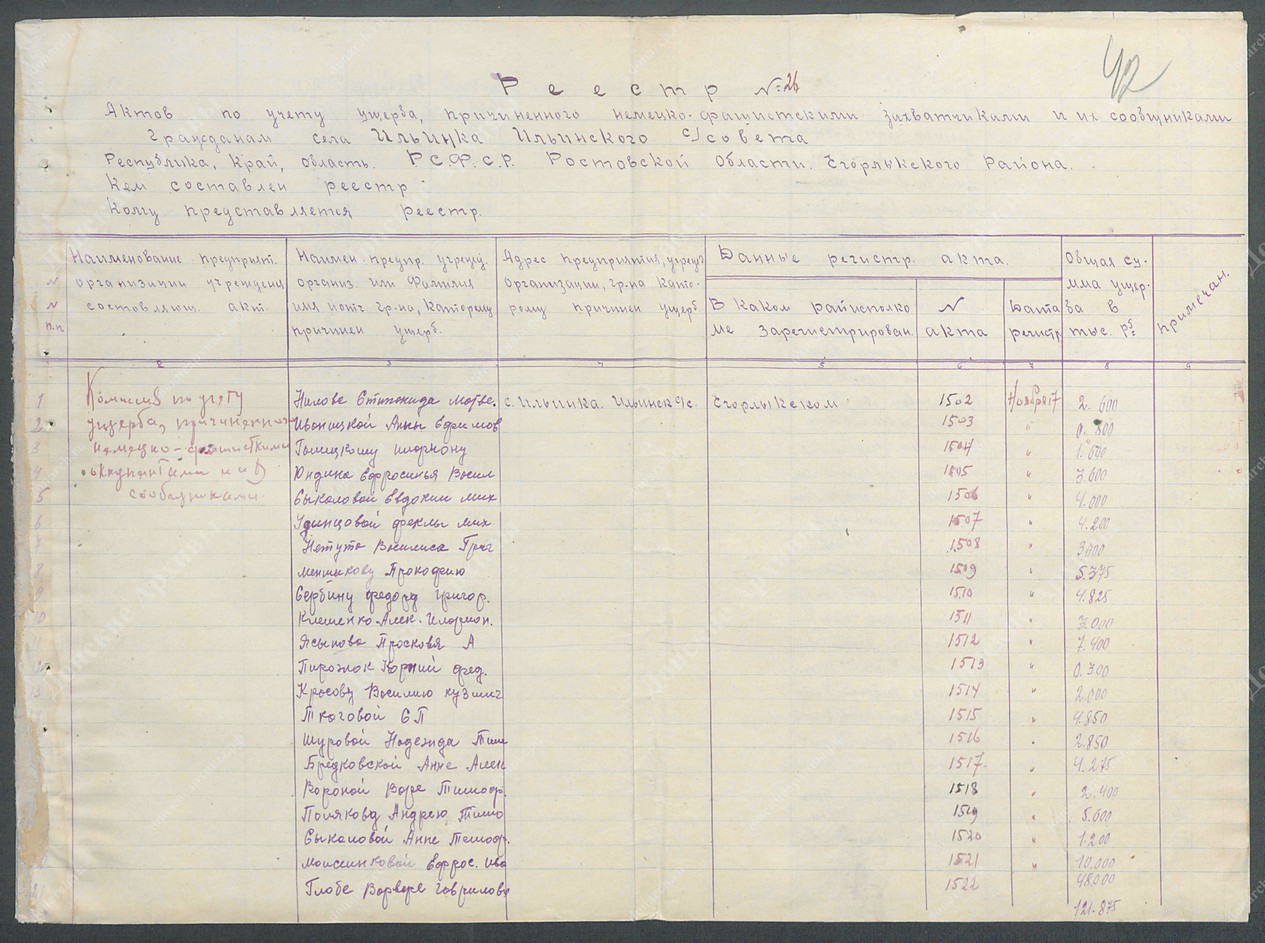 42
Реестр №26
Актов по учету ущерба, причиненного немецко-фашистскими захватчиками и их сообщниками
Гражданам села Ильинка Ильинского с/совета
Республика, Край, область. РСФСР. Ростовской Области. Егорлыкского Района.
Кем составлен реестр
Кому представляется реестр.
№ № п.п.
Наименование предприят. организации учреждения составляющ. акт.
Наимен предпр. учрежд. организ. или Фамилия имя потч. гр-на, Каторому причинен ущерб.
Адрес предприятия, учрежд Организации, гр-на Като-рому причинен ущерб
Данные регистр. акта.
В каком райисполко ме Зарегистрирован
N акта
Дата регистр
Общая су-мма ущер-ба в тыс. рб
Примечан.
2 3 4 5 6 7 8 9
Комиссия по учету ущерба, причиненного немецко-фашисткими оккупантами и их сообщниками
1 с. Ильинка. Ильинск с/с. Егорлыкском 1502 Ноября 17 2.600
2 Иваницкой Анны Ефимов 1503 " 0.800
3 1504 " 1.600
4 Юндина Ефросинья Васил 1505 " 3.600
5 Быкаловой Евдокии мих 1506 " 4.000
6 Удинцовой феклы мих 1507 " 4.200
7 Нетута Василиса Григ 1508 " 3000
8 Меншикову Прокофию 1509 " 5.375
9 Сербину федору григор. 1510 " 4.825
10 Клеменко Алек. Иларион. 1511 " 3.000
11 Ясынова Просковя А 1512 " 7.400
Пирожок Корний фед. 1513 " 0.300
13 Красову Василию кузмич 1514 " 2.000
Ткоговой ЕП 1515 " 4.850
Шуровой Надежда Тим 1516 " 2.850
Бридковской Анне Алек 1517 " 4.275
Вороной Варе Тимоф. 1518 " 2.400
Полякову Андрею Тимо 1519 " 5.600
Быкаловой Анне Тимоф. 1520 " 1.200
Моисеинковой Ефрос. Ива 1521 " 10.000
21 Глобе Варваре Гаврилов 1522 48.000
121.875